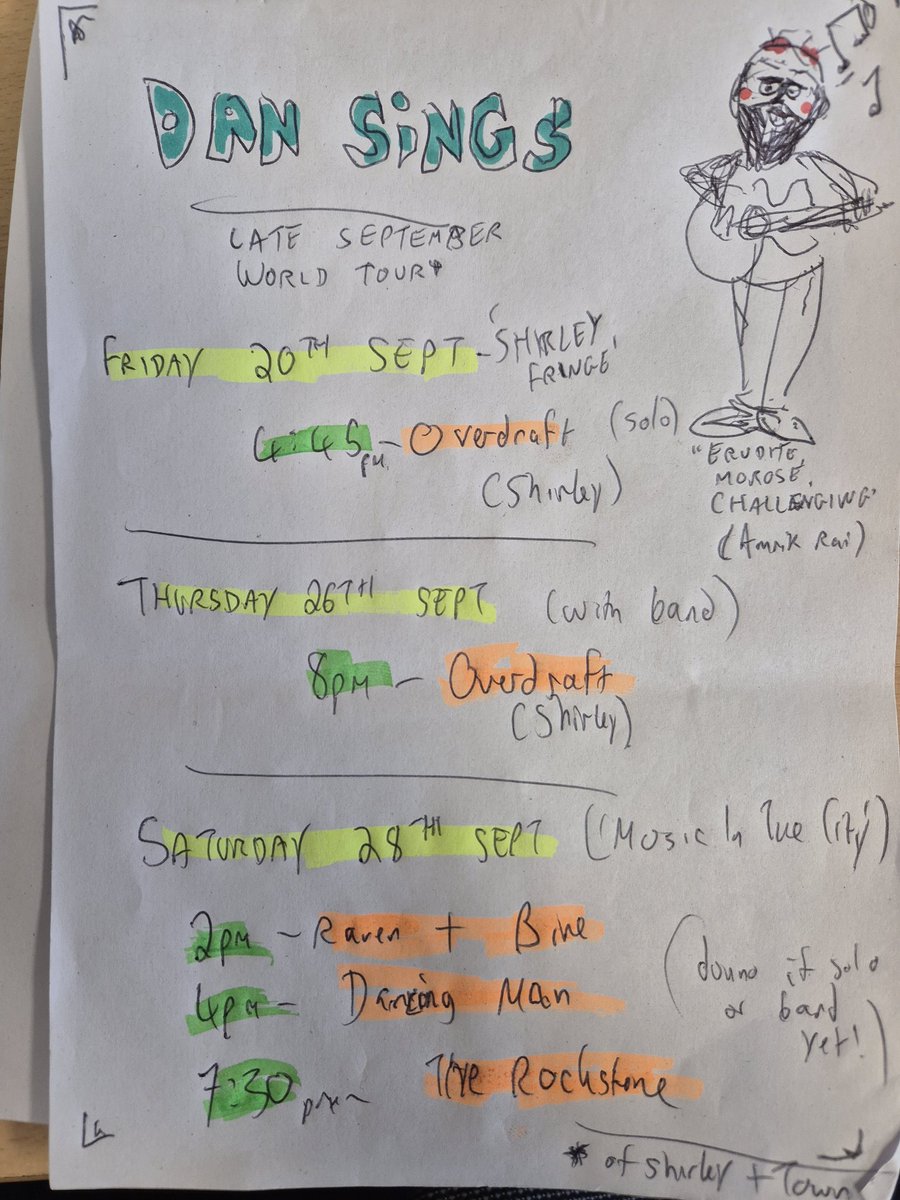 DAN SiNGS
LATE SEPTEMBER
WORLD TOUR*
FRIDAY 20TH SEPT - 'SHIRLEY
FRINGE'
4:45pm - Overdraft (solo)
(Shirley)
"ERUDITE,
MOROSE,
CHALLENGING"
(Amrik Rai)
THURSDAY 26TH SEPT (with band)
8pm - Overdraft
(Shirley)
SATURDAY 28TH SEPT ('Music In The City')
2pm - Raven + Bine
4pm - Dancing Man
7:30pm - The Rockstone
(dunno if solo
or band
yet!)
* of Shirley + Town